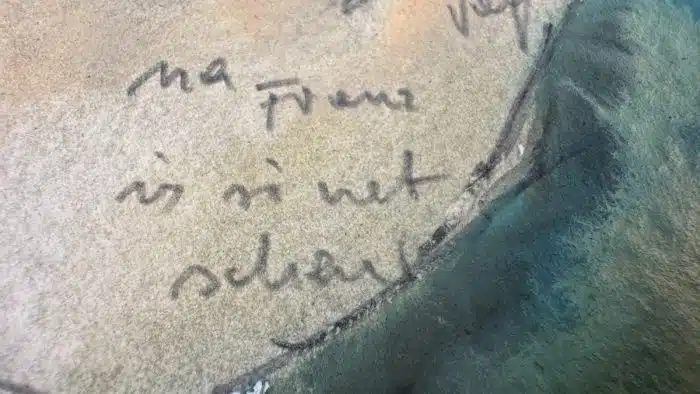 na Franz
is si net
scharf